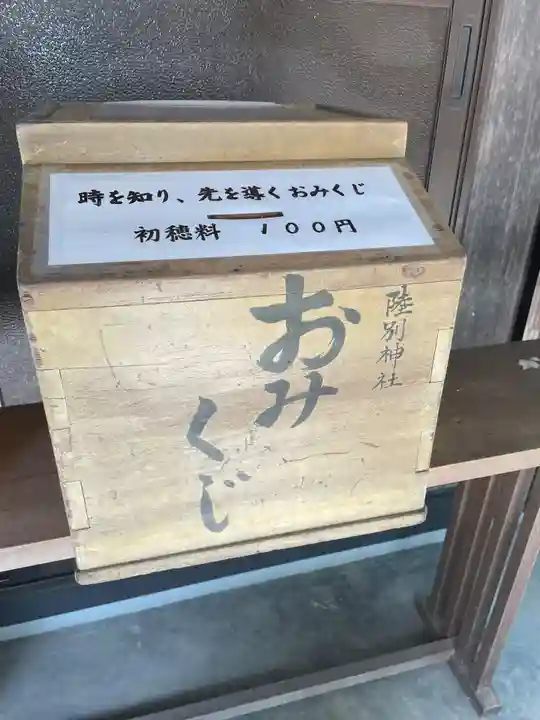 時を知り、先を導くおみくじ
初穂料 100円
陸別神社
おみ
くじ